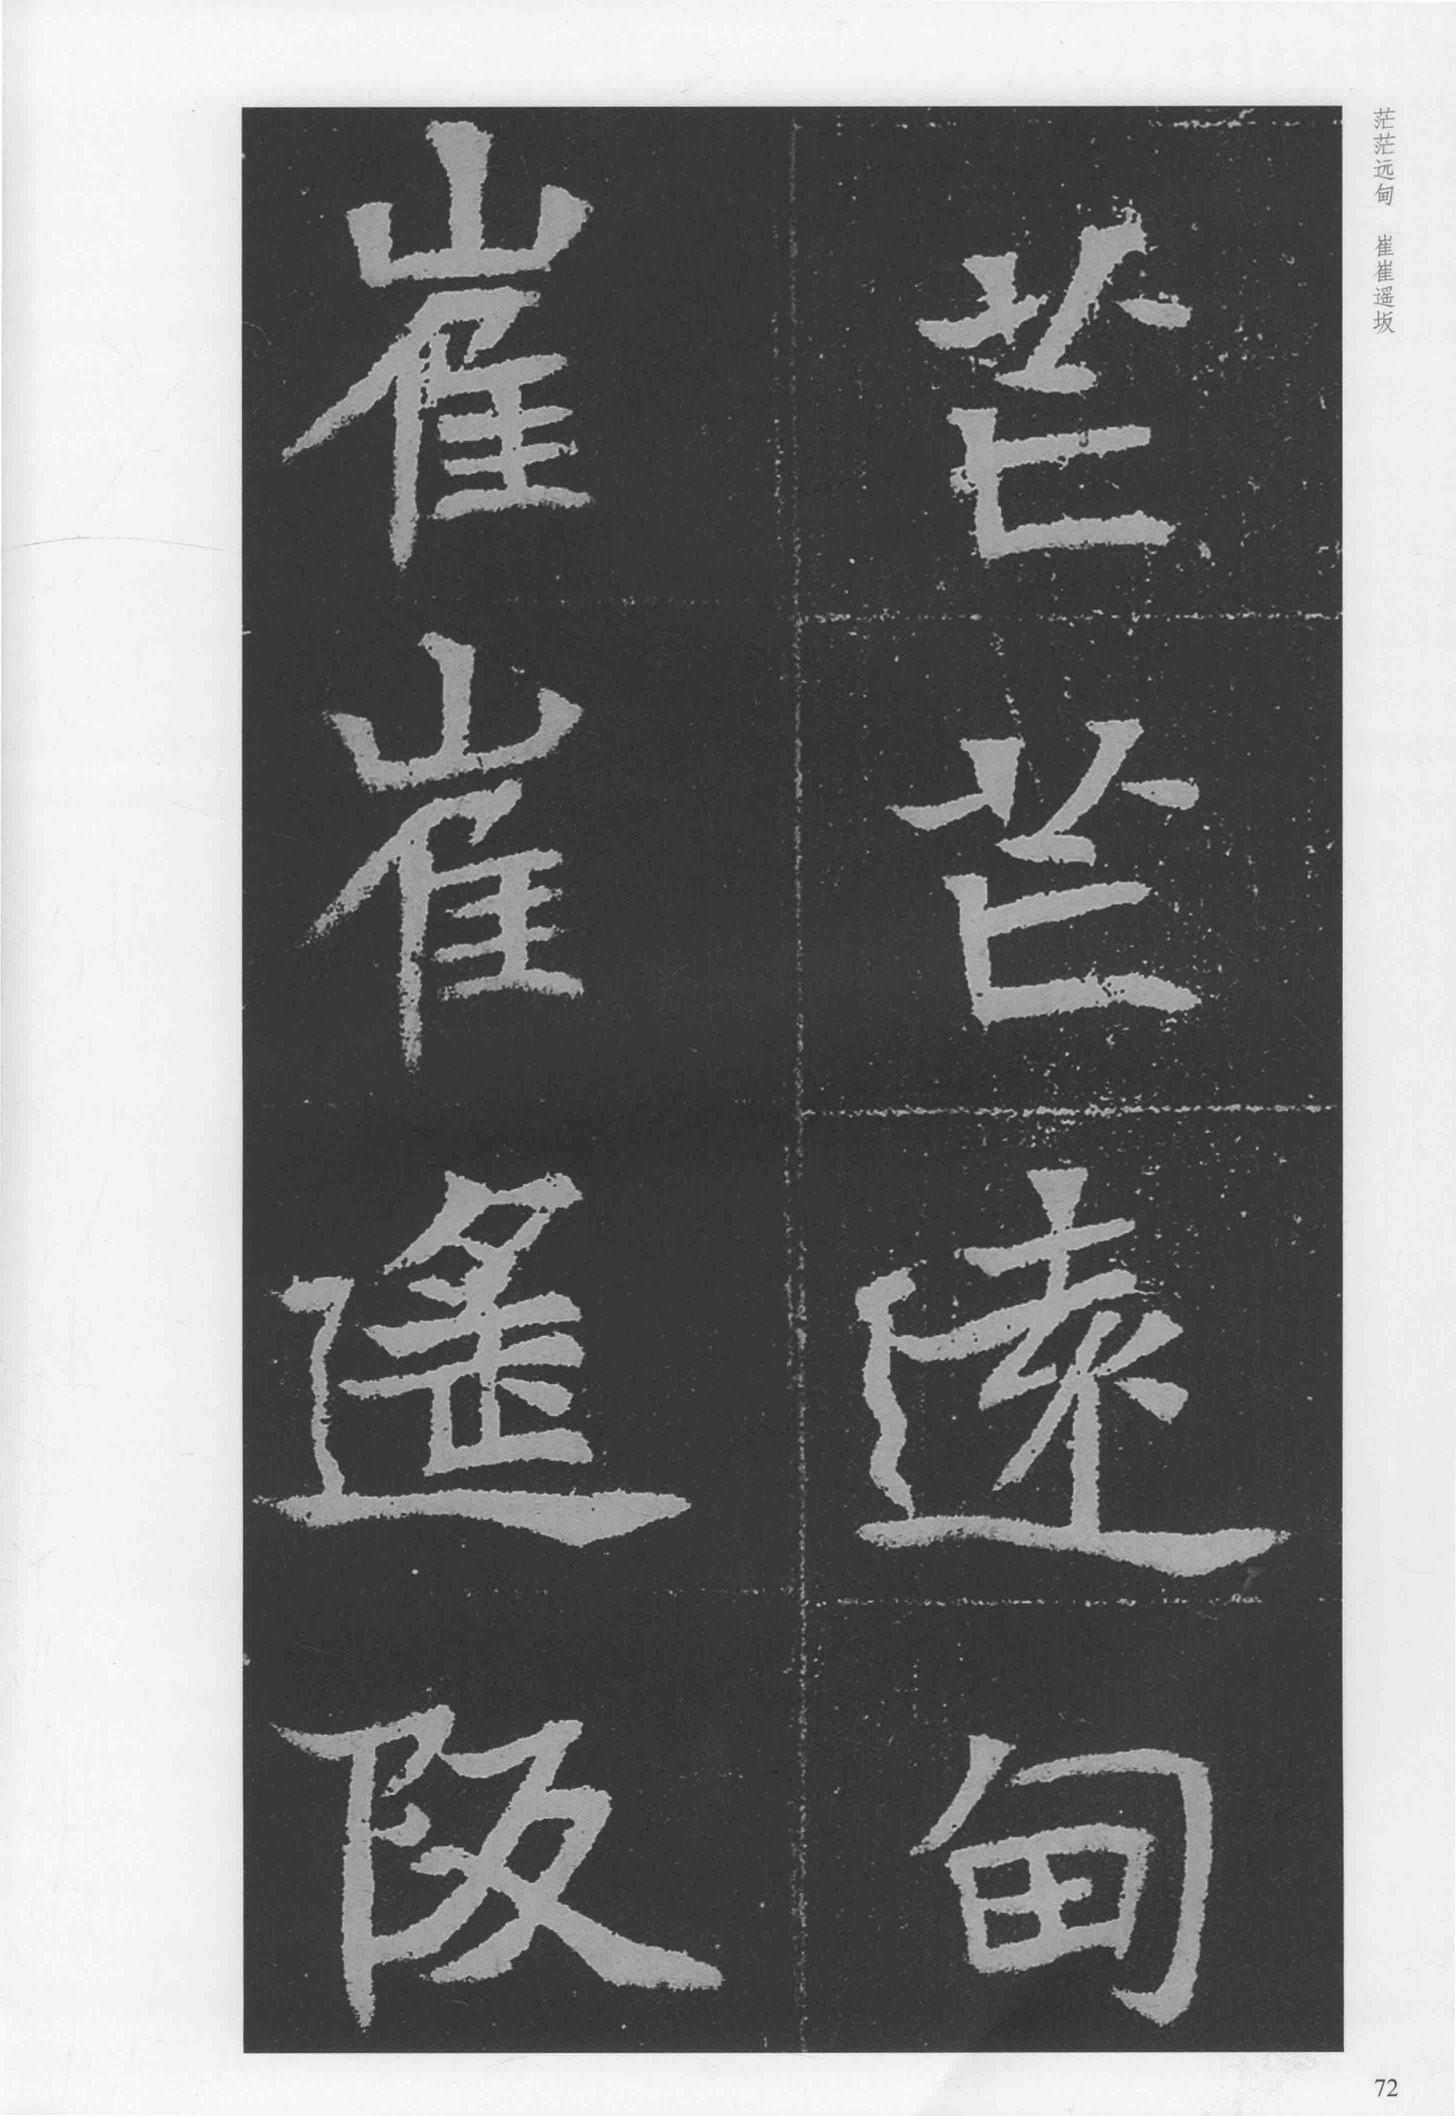 茫茫远甸 崔崔遥坂
芒芒遠甸
崔崔遙阪
72